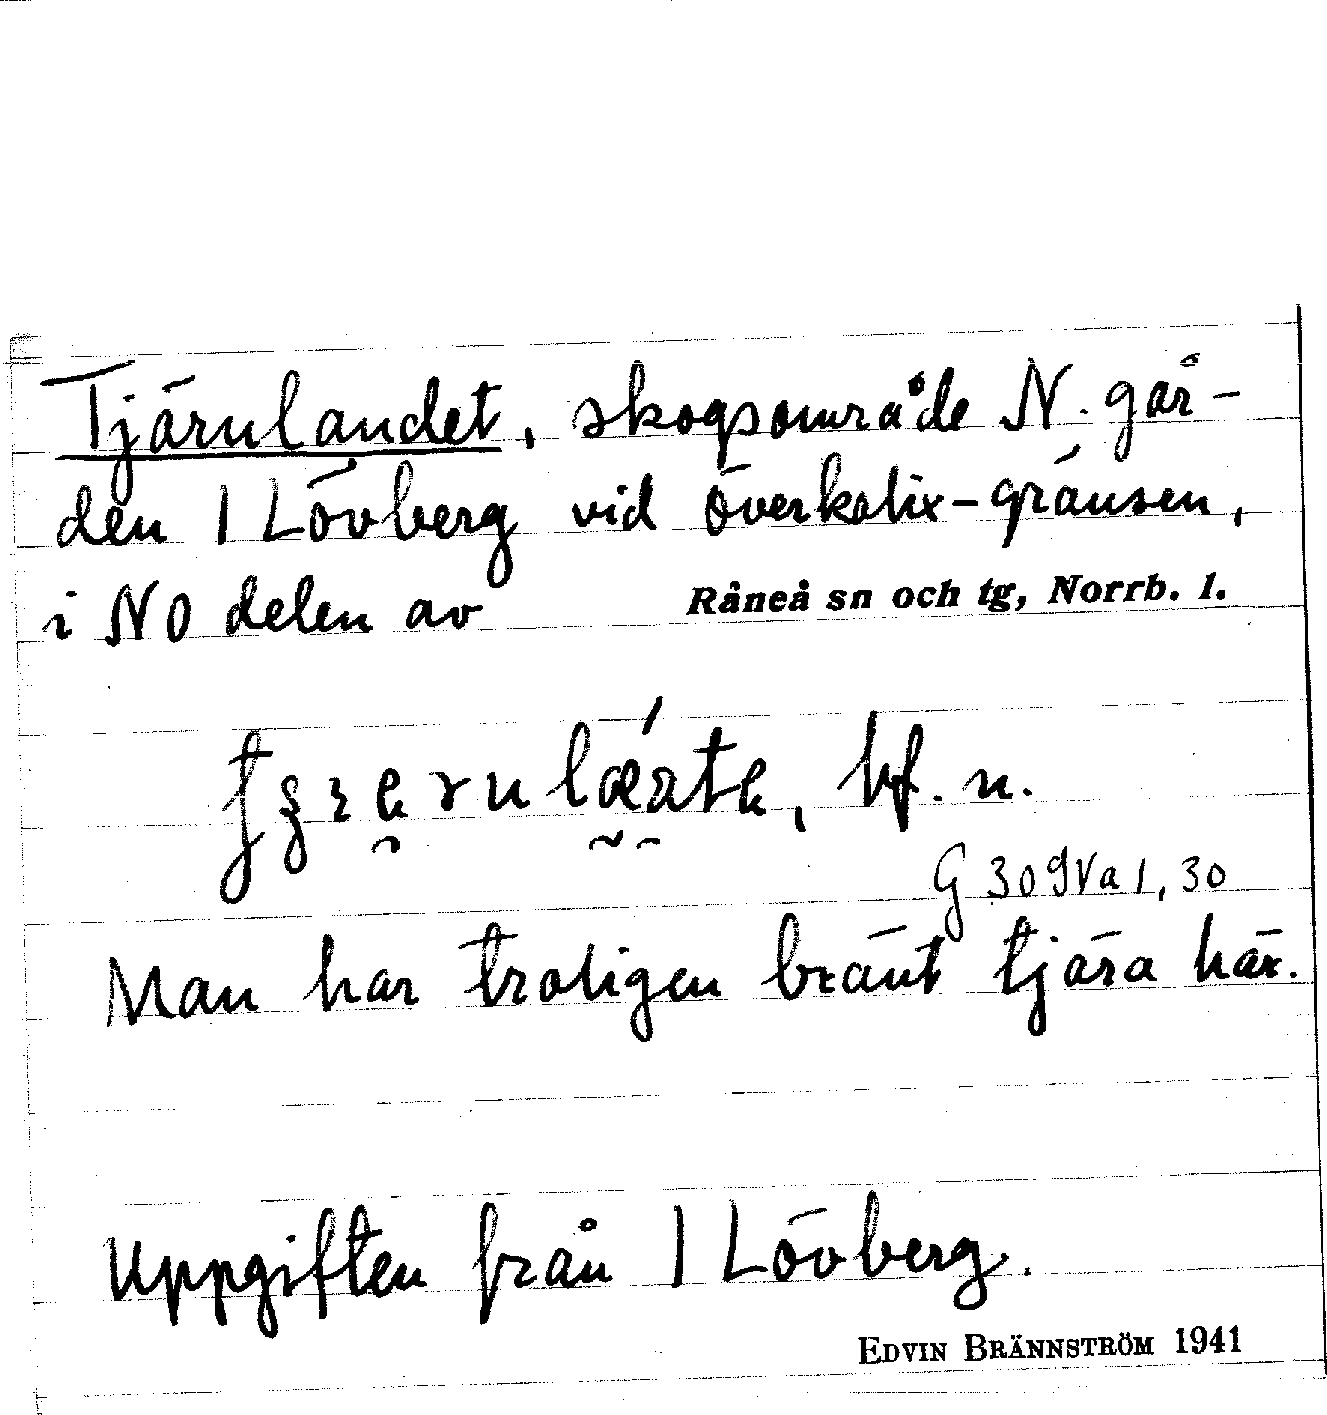 Tjärulandet, skogsområde N. går-
den 1 Lövberg vid Överkalix-gränsen,
i NO delen av Råneå sn och tg, Norrb. l.
bf. n.
G 309Va1,30
Man har troligen bränt tjära här.
Uppgiften från 1 Lövberg.
EDVIN BRÄNNSTRÖM 1941